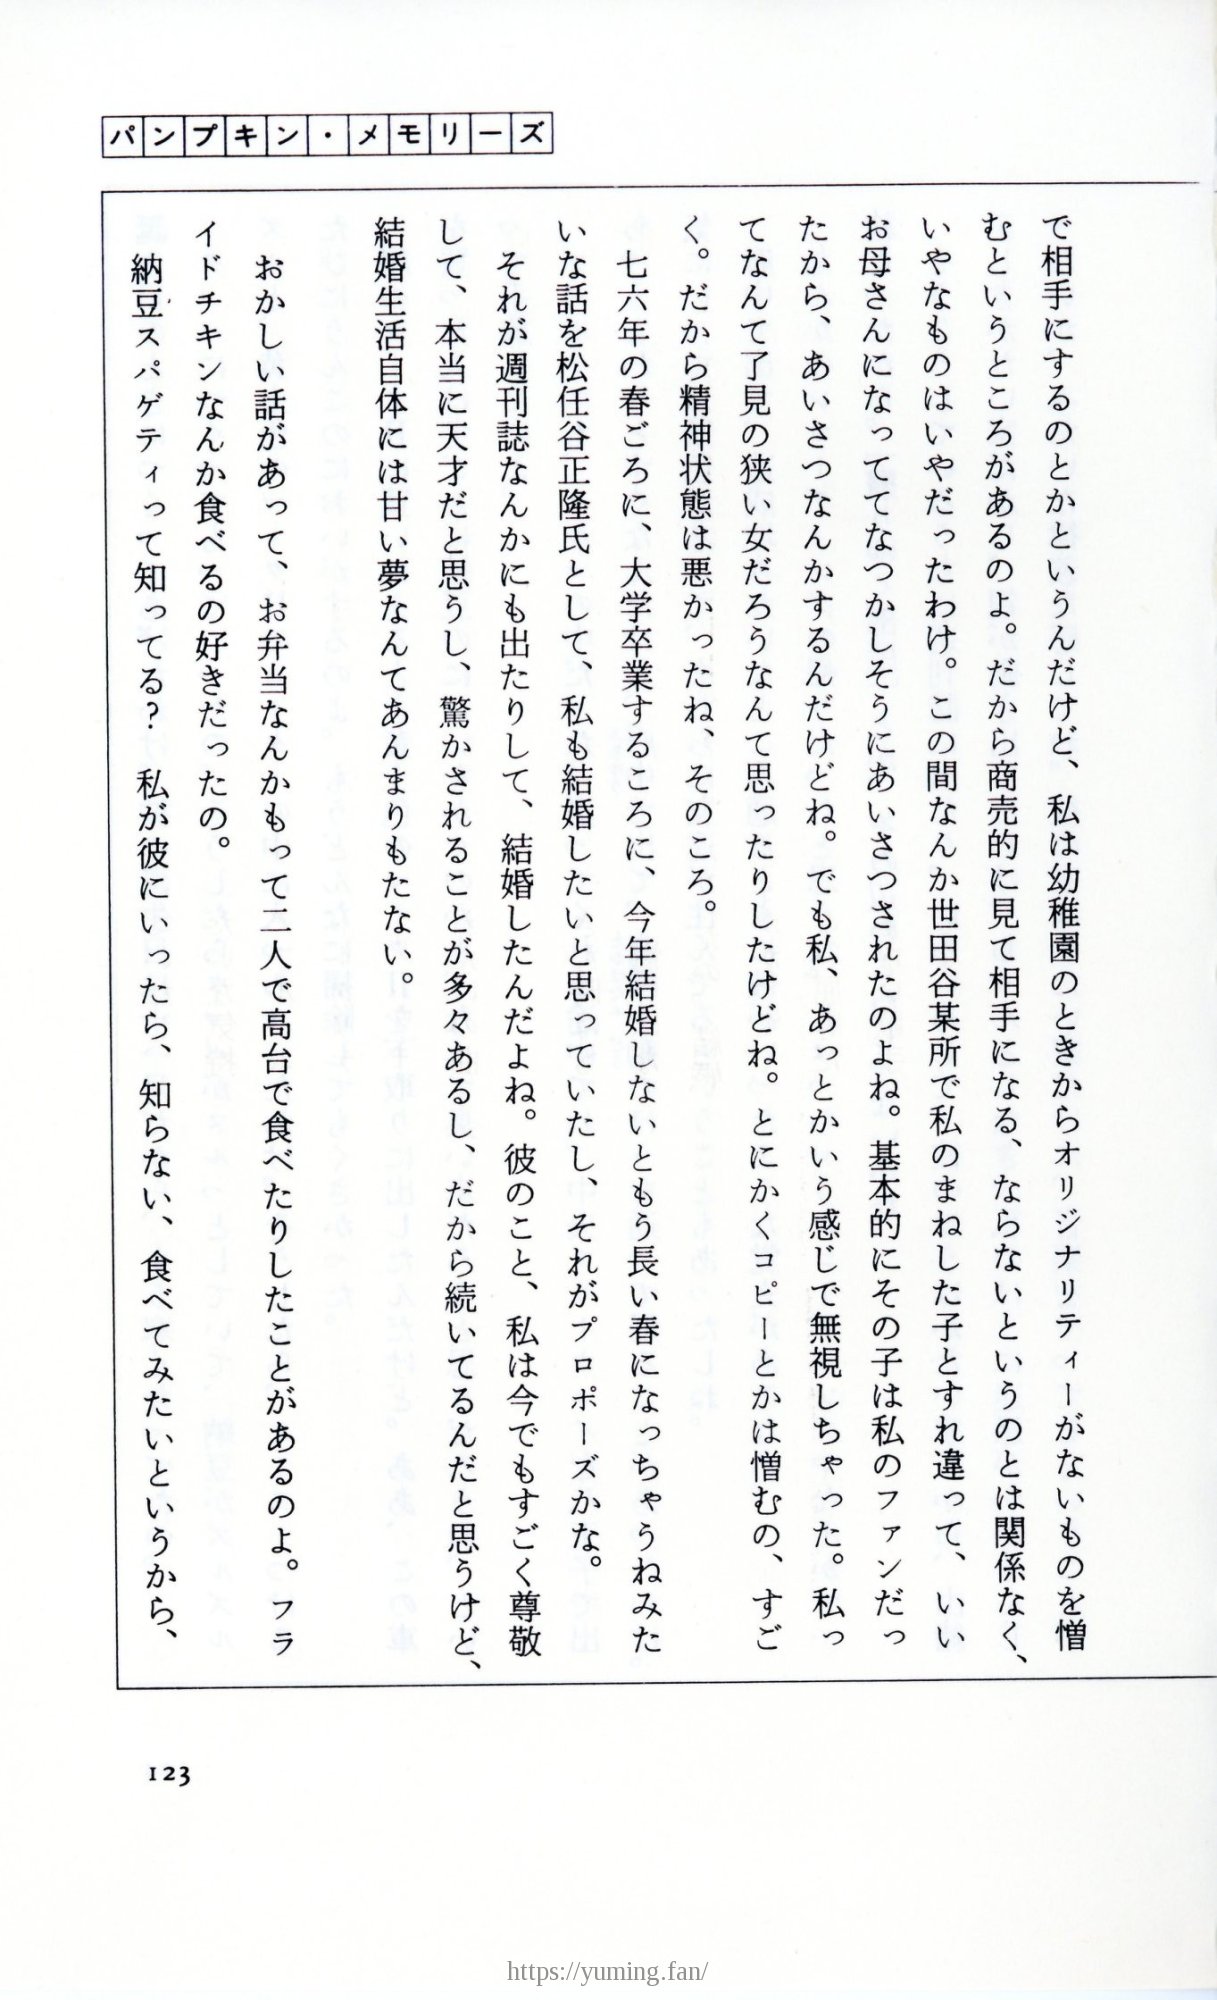 パンプキン・メモリーズ
で相手にするのとかというんだけど、私は幼稚園のときからオリジナリティーがないものを憎
むというところがあるのよ。だから商売的に見て相手になる、ならないというのとは関係なく、
いやなものはいやだったわけ。この間なんか世田谷某所で私のまねした子とすれ違って、いい
お母さんになっててなつかしそうにあいさつされたのよね。基本的にその子は私のファンだっ
たから、あいさつなんかするんだけどね。でも私、あっとかいう感じで無視しちゃった。私っ
てなんて了見の狭い女だろうなんて思ったりしたけどね。とにかくコピーとかは憎むの、すご
く。だから精神状態は悪かったね、そのころ。
七六年の春ごろに、大学卒業するころに、今年結婚しないともう長い春になっちゃうねみた
いな話を松任谷正隆氏として、私も結婚したいと思っていたし、それがプロポーズかな。
それが週刊誌なんかにも出たりして、結婚したんだよね。彼のこと、私は今でもすごく尊敬
して、本当に天才だと思うし、驚かされることが多々あるし、だから続いてるんだと思うけど、
結婚生活自体には甘い夢なんてあんまりもたない。
おかしい話があって、お弁当なんかもって二人で高台で食べたりしたことがあるのよ。フラ
イドチキンなんか食べるの好きだったの。
納豆スパゲティって知ってる? 私が彼にいったら、知らない、食べてみたいというから、
123
https://yuming.fan/